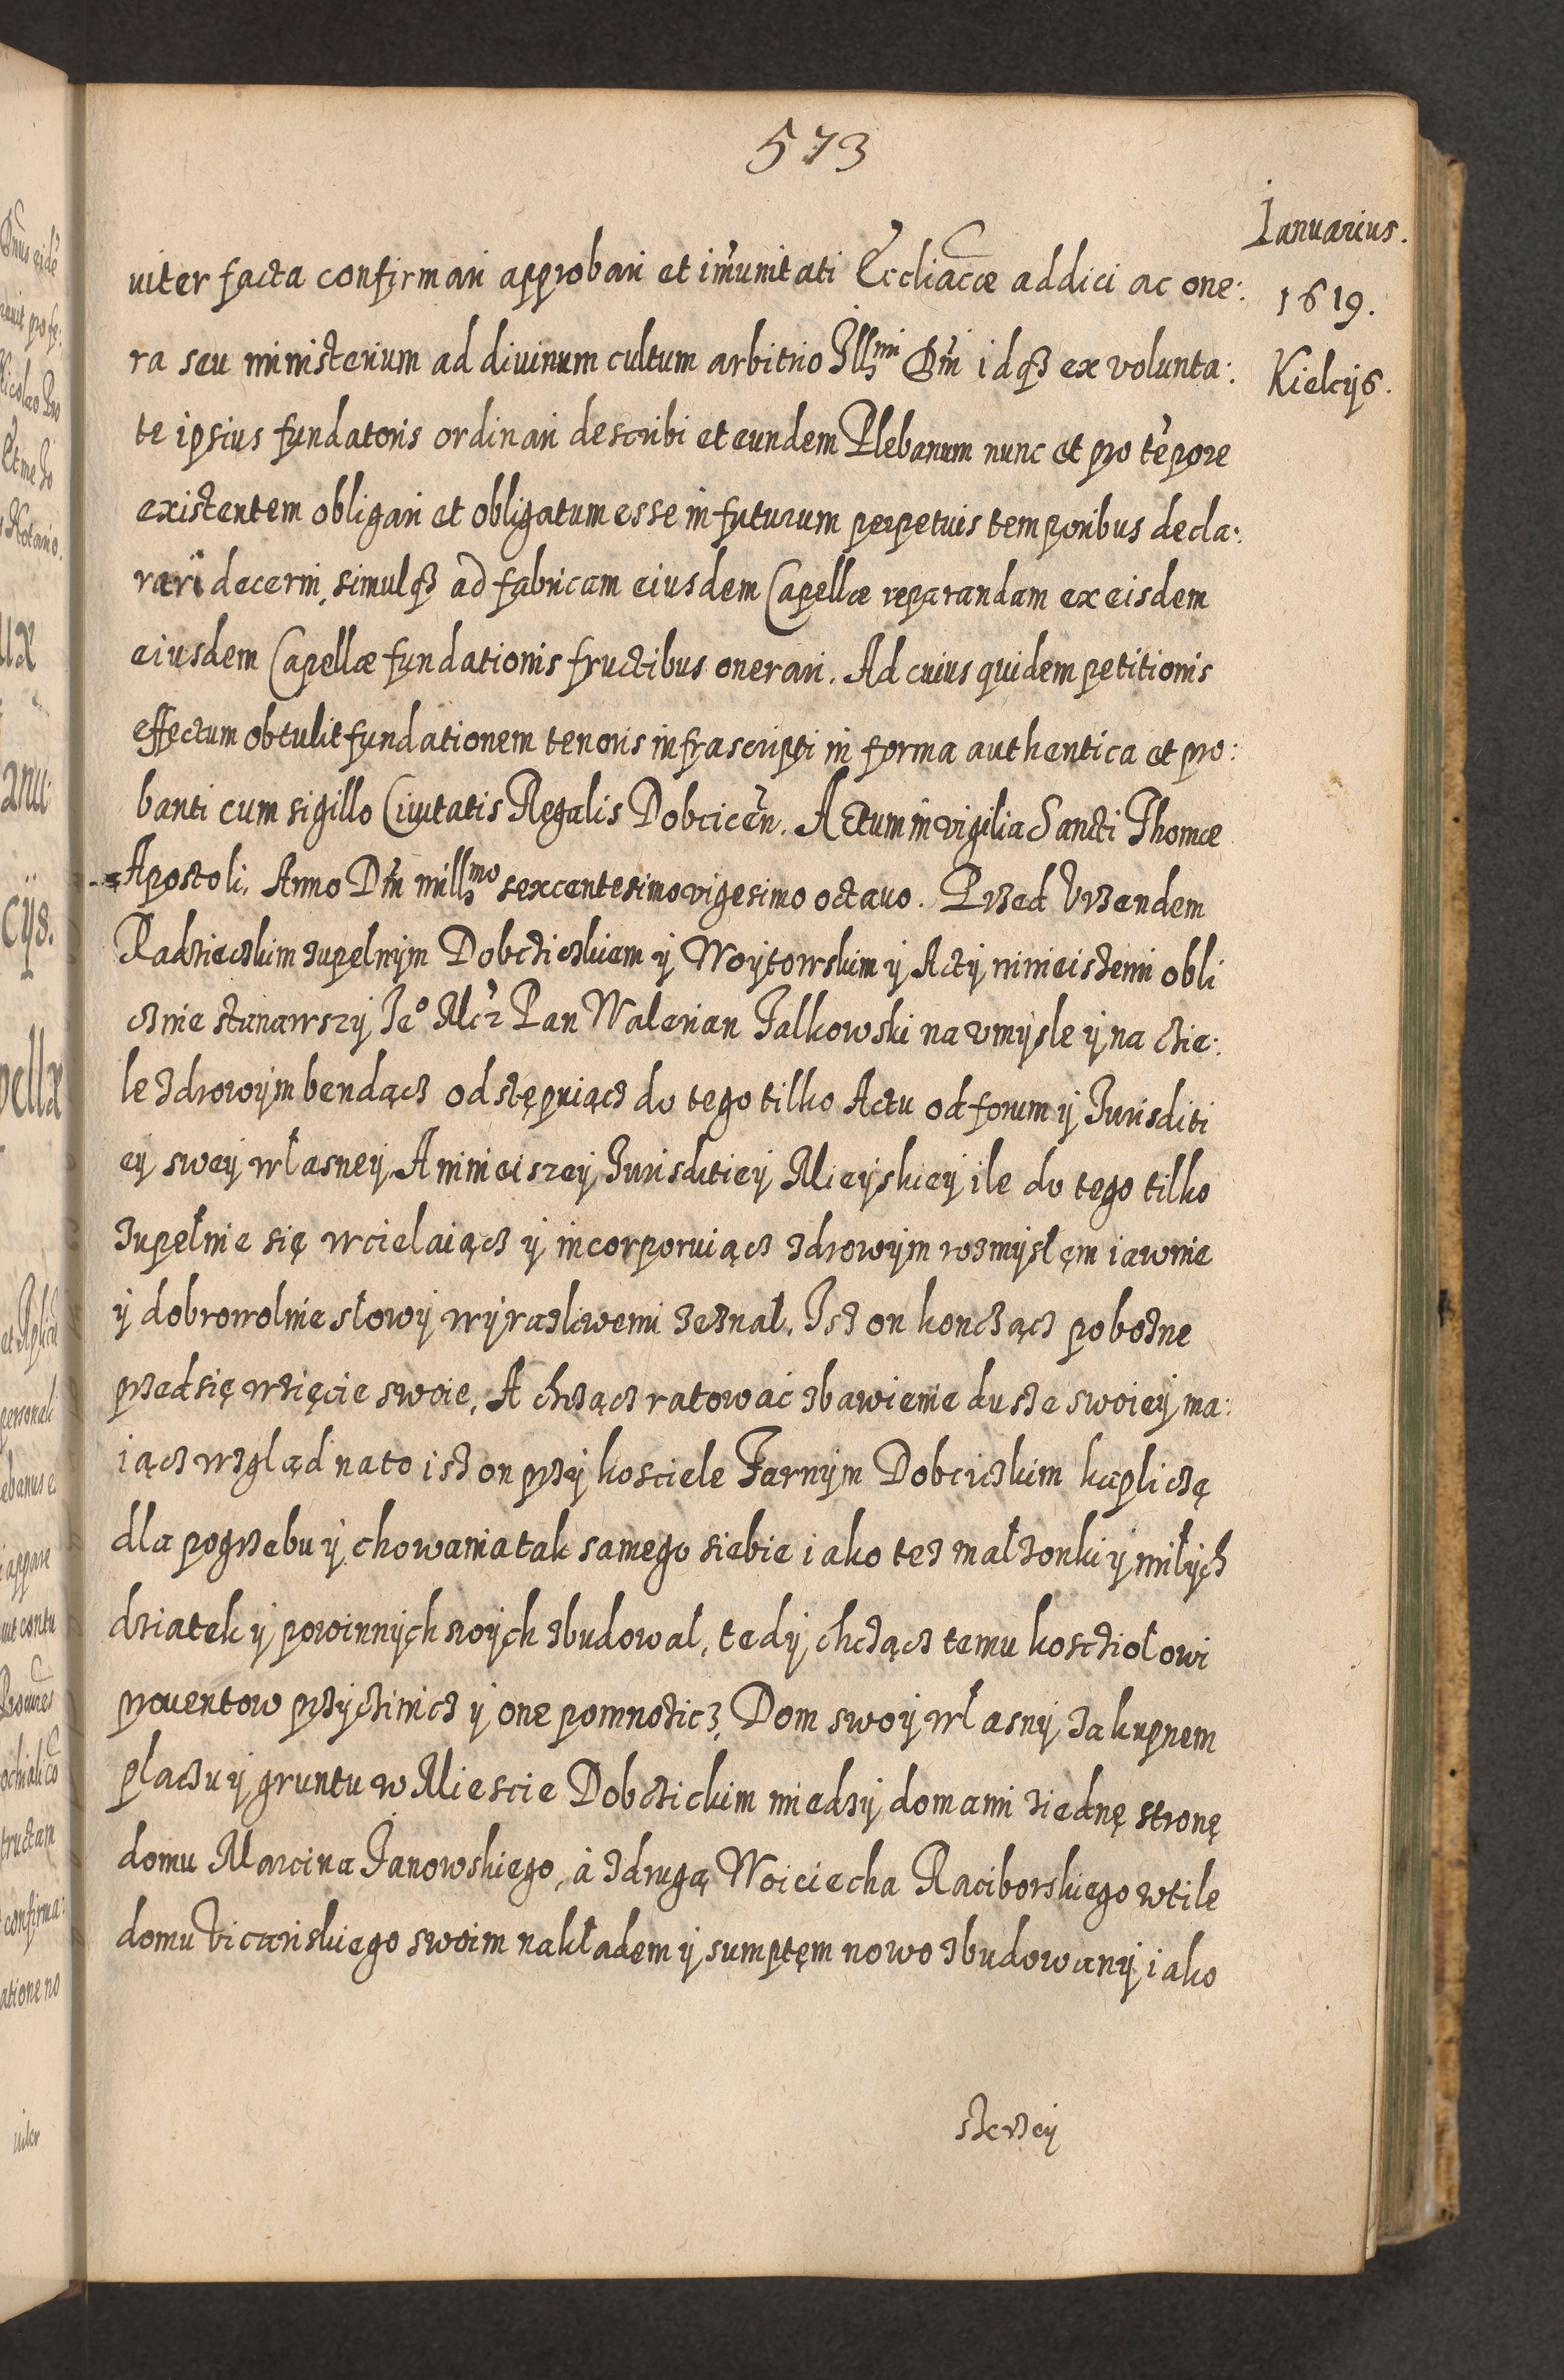 573
Ianuarius.
1619.
Kielcijs.
uiter facta confirmari approbari et im̃unitati Eccliacæ addici ac one:
ra seu ministerium ad diuinum cultum arbitrio Illmi Dm̃ idqз ex volunta:
te ipsius fundatoris ordinari describi et eundem Plebanum nunc et pro tẽpore
existentem obligari et obligatum esse in futurum perpetuis temporibus decla:
rari decerni, simulqз ad fabricam eiusdem Capellæ reparandam ex eisdem
eiusdem Capellæ fundationis fructibus onerari. Ad cuius quidem petitionis
effectum obtulit fundationem tenoris infrascripti in forma authentica et pro:
banti cum sigillo Ciuitatis Regalis Dobcicen̄. Actum in vigilia Sancti Thomæ
Apostoli. Anno Dn̄i millmo sexcentesimo vigesimo octauo. Przed Vrzendem
Radzieczkim zupelnym Dobcziczkiem ÿ Woÿtowskim ÿ Actÿ ninieiszemi obli
cznie stanawszÿ Ieo Mcz Pan Walerian Jalkowski na vmÿsle ÿ na czie:
le zdrowÿm bendącz odstępuiącz do tego tilko Actu od forum ÿ Iurisditi
eÿ sweÿ własneÿ A ninieiszeÿ Iurisditieÿ Mieÿskieÿ ile do tego tilko
zupełnie się wcielaiącz ÿ incorporuiącz zdrowÿm rozmÿsłęm iawnie
ÿ dobrowolnie słowÿ wÿrazliwemi zeznał. Isz on koncząc pobozne
przedsię wzięcie swoie, A chcząc ratować zbawienie dusze swoieÿ ma:
iącz wzgląd na to isz on przÿ kosciele Farnÿm Dobciczkim kapliczę
dla pogrzebu ÿ chowania tak samego siebie iako tez małzonki ÿ miłÿch
dziatek ÿ powinnÿch swÿch zbudowal, tedÿ chcząc temu koscziołowi
prouentow przÿczinicz ÿ one pomnozicz, Dom swoÿ własnÿ zakupnem
placzu ÿ gruntu w Miescie Dobczickim miedzÿ domami ziednę stronę
domu Marcina Ianowskiego, à zdrugą Woiciecha Raciborskiego wtile
domu Vicariskiego swoim nakładem ÿ sumptęm nowo zbudowanÿ iako